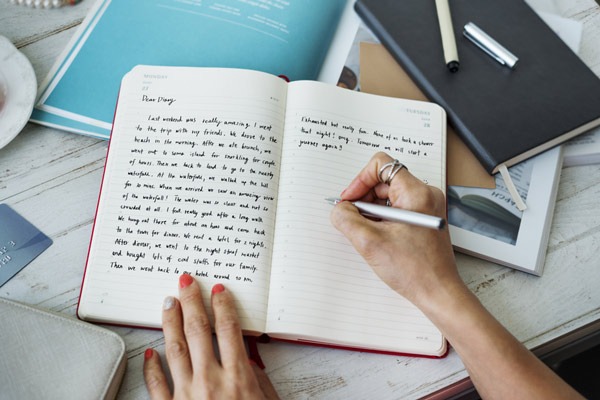 Dear Diary,
Last weekend was really amazing. I went
to the trip with my friends. We drove to the
beach in the morning. After we ate brunch, we
went out to some island for snorkling for couple
of hours. Then we back to land to go to the nearby
waterfalls. At the waterfalls, we walked up the hill
for 30 mins. When we arrived we saw an amazing view
of the waterfall! The water was so clear and not so
crowded at all. I felt really good after a long walk
We hung out there for about an hour and came back
to the town for dinner. We rent a hotel for 2 nights.
After dinner, we went to the night street market
and bought lots of cool stuffs for our family.
Then we went back to hotel around 10 pm,
Exhausted but really fun. None of us took a shower
that night! Tomorrow we will start a
journey again!